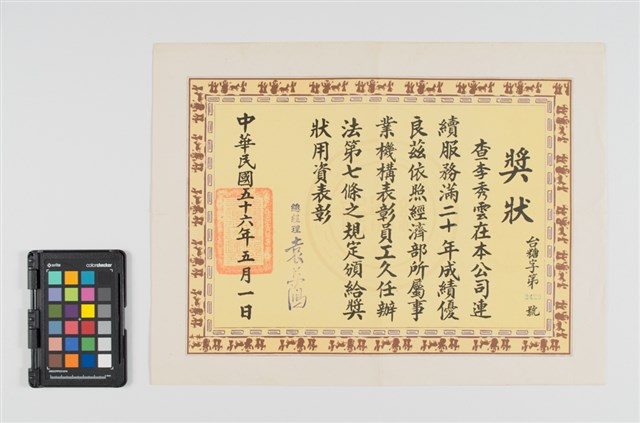 獎狀
台糖字第
號
查李秀雲在本公司連
續服務滿二十年成績優
良茲依照經濟部所屬事
業機構表彰員工久任辦
法第七條之規定頒給獎
狀用資表彰
總經理
中華民國五十六年五月一日
x-rite
colorchecker